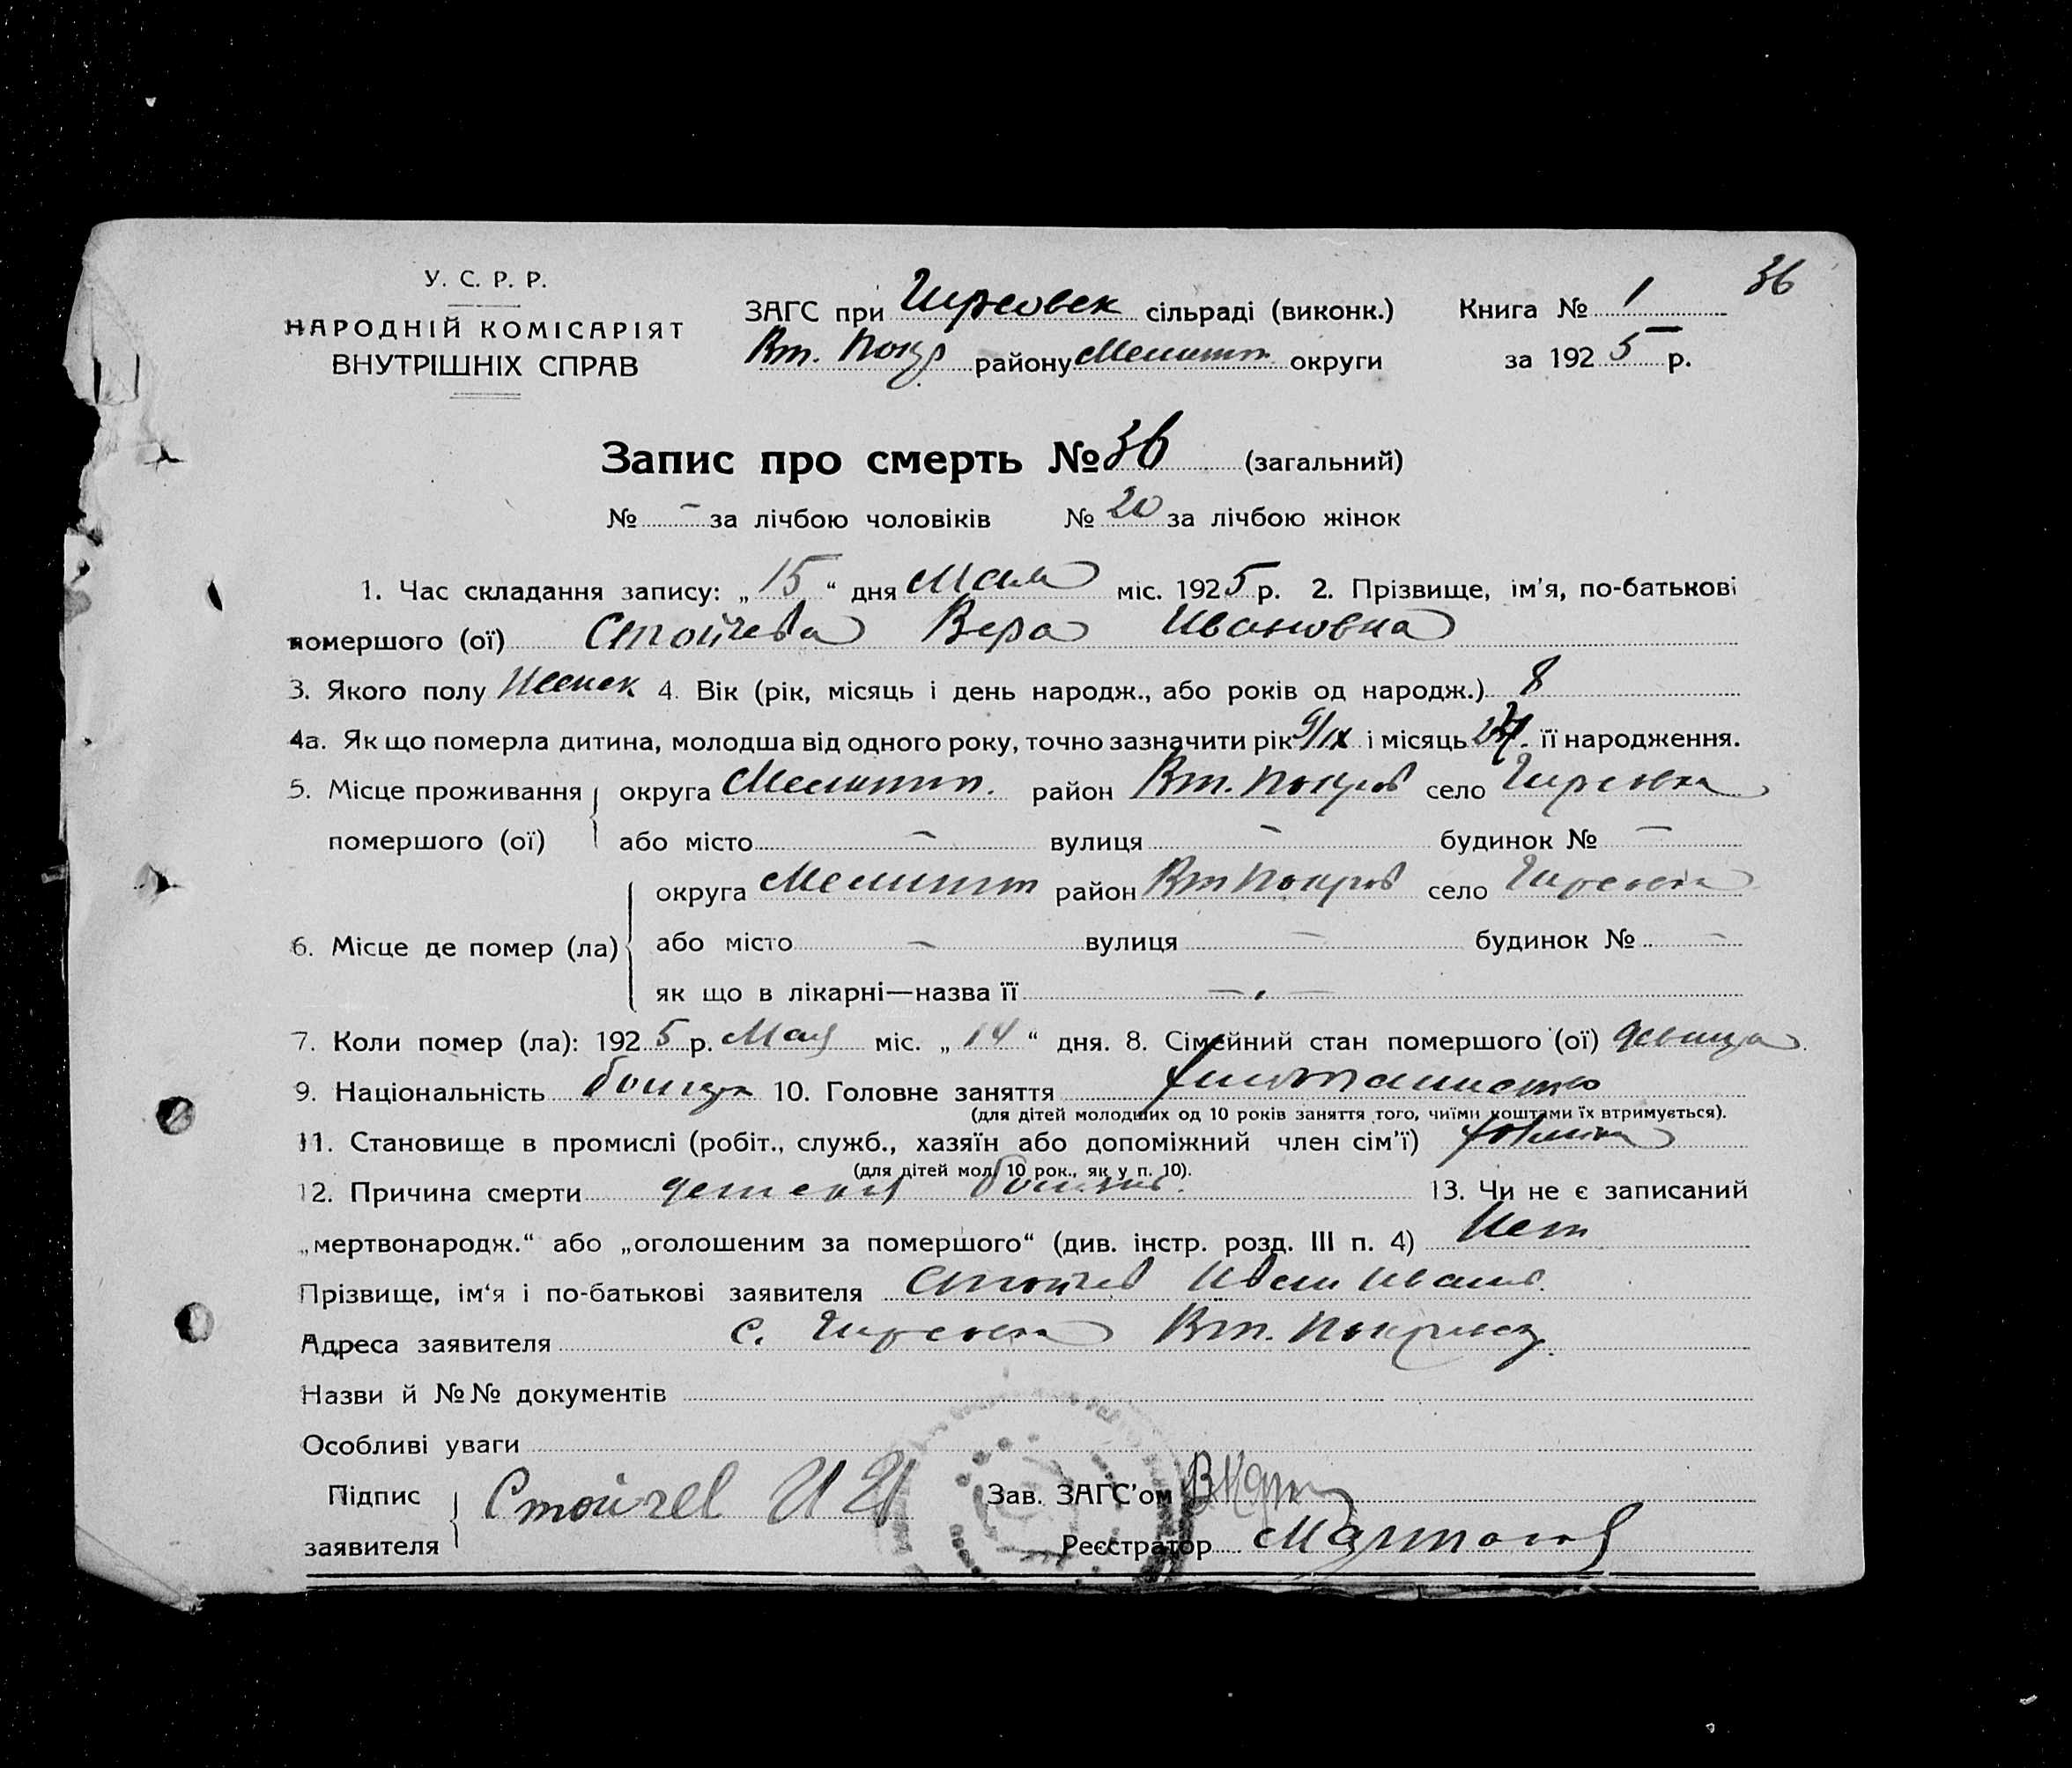 36
У. С. Р. Р.
НАРОДНІЙ КОМІСАРІЯТ
ВНУТРІШНІХ СПРАВ
ЗАГС при Гирсовск сільраді (виконк.)
Вт. Покр району Мелитоп. округи
Книга № 1
за 1925 р.
Запис про смерть № 36 (загальний)
№ – за лічбою чоловіків № 20 за лічбою жінок
1. Час складання запису: „15“ дня Мая міс. 1925 р. 2. Прізвище, ім'я, по-батькові
помершого (ої) Стойчева Вера Ивановна
3. Якого полу Женск 4. Вік (рік, місяць і день народж., або років од народж.) 8
4а. Як що померла дитина, молодша від одного року, точно зазначити рік 9/IX і місяць 24. її народження.
5. Місце проживання округа Мелитоп. район Вт. Покров село Гирсовка
помершого (ої) або місто – вулиця – будинок № –
округа Мелитоп район Вт Покров село Гирсовка
6. Місце де помер (ла) або місто – вулиця – будинок № –
як що в лікарні—назва її –„–
7. Коли помер (ла): 1925 р. Мая міс. „14“ дня. 8. Сімейний стан помершого (ої) девица
9. Національність 10. Головне заняття
(для дітей молодших од 10 років заняття того, чиїми коштами їх втримується).
11. Становище в промислі (робіт., служб., хазяїн або допоміжний член сім'ї)
(для дітей мол. 10 рок., як у п. 10).
12. Причина смерти детская 13. Чи не є записаний
„мертвонародж.“ або „оголошеним за помершого“ (див. інстр. розд. III п. 4) Нет
Прізвище, ім'я і по-батькові заявителя Стойчев Иван Иванов.
Адреса заявителя с. Гирсовка Вт. Покровск.
Назви й №№ документів
Особливі уваги
Підпис
заявителя Стойчев И И
Зав. ЗАГС'ом
Реєстратор